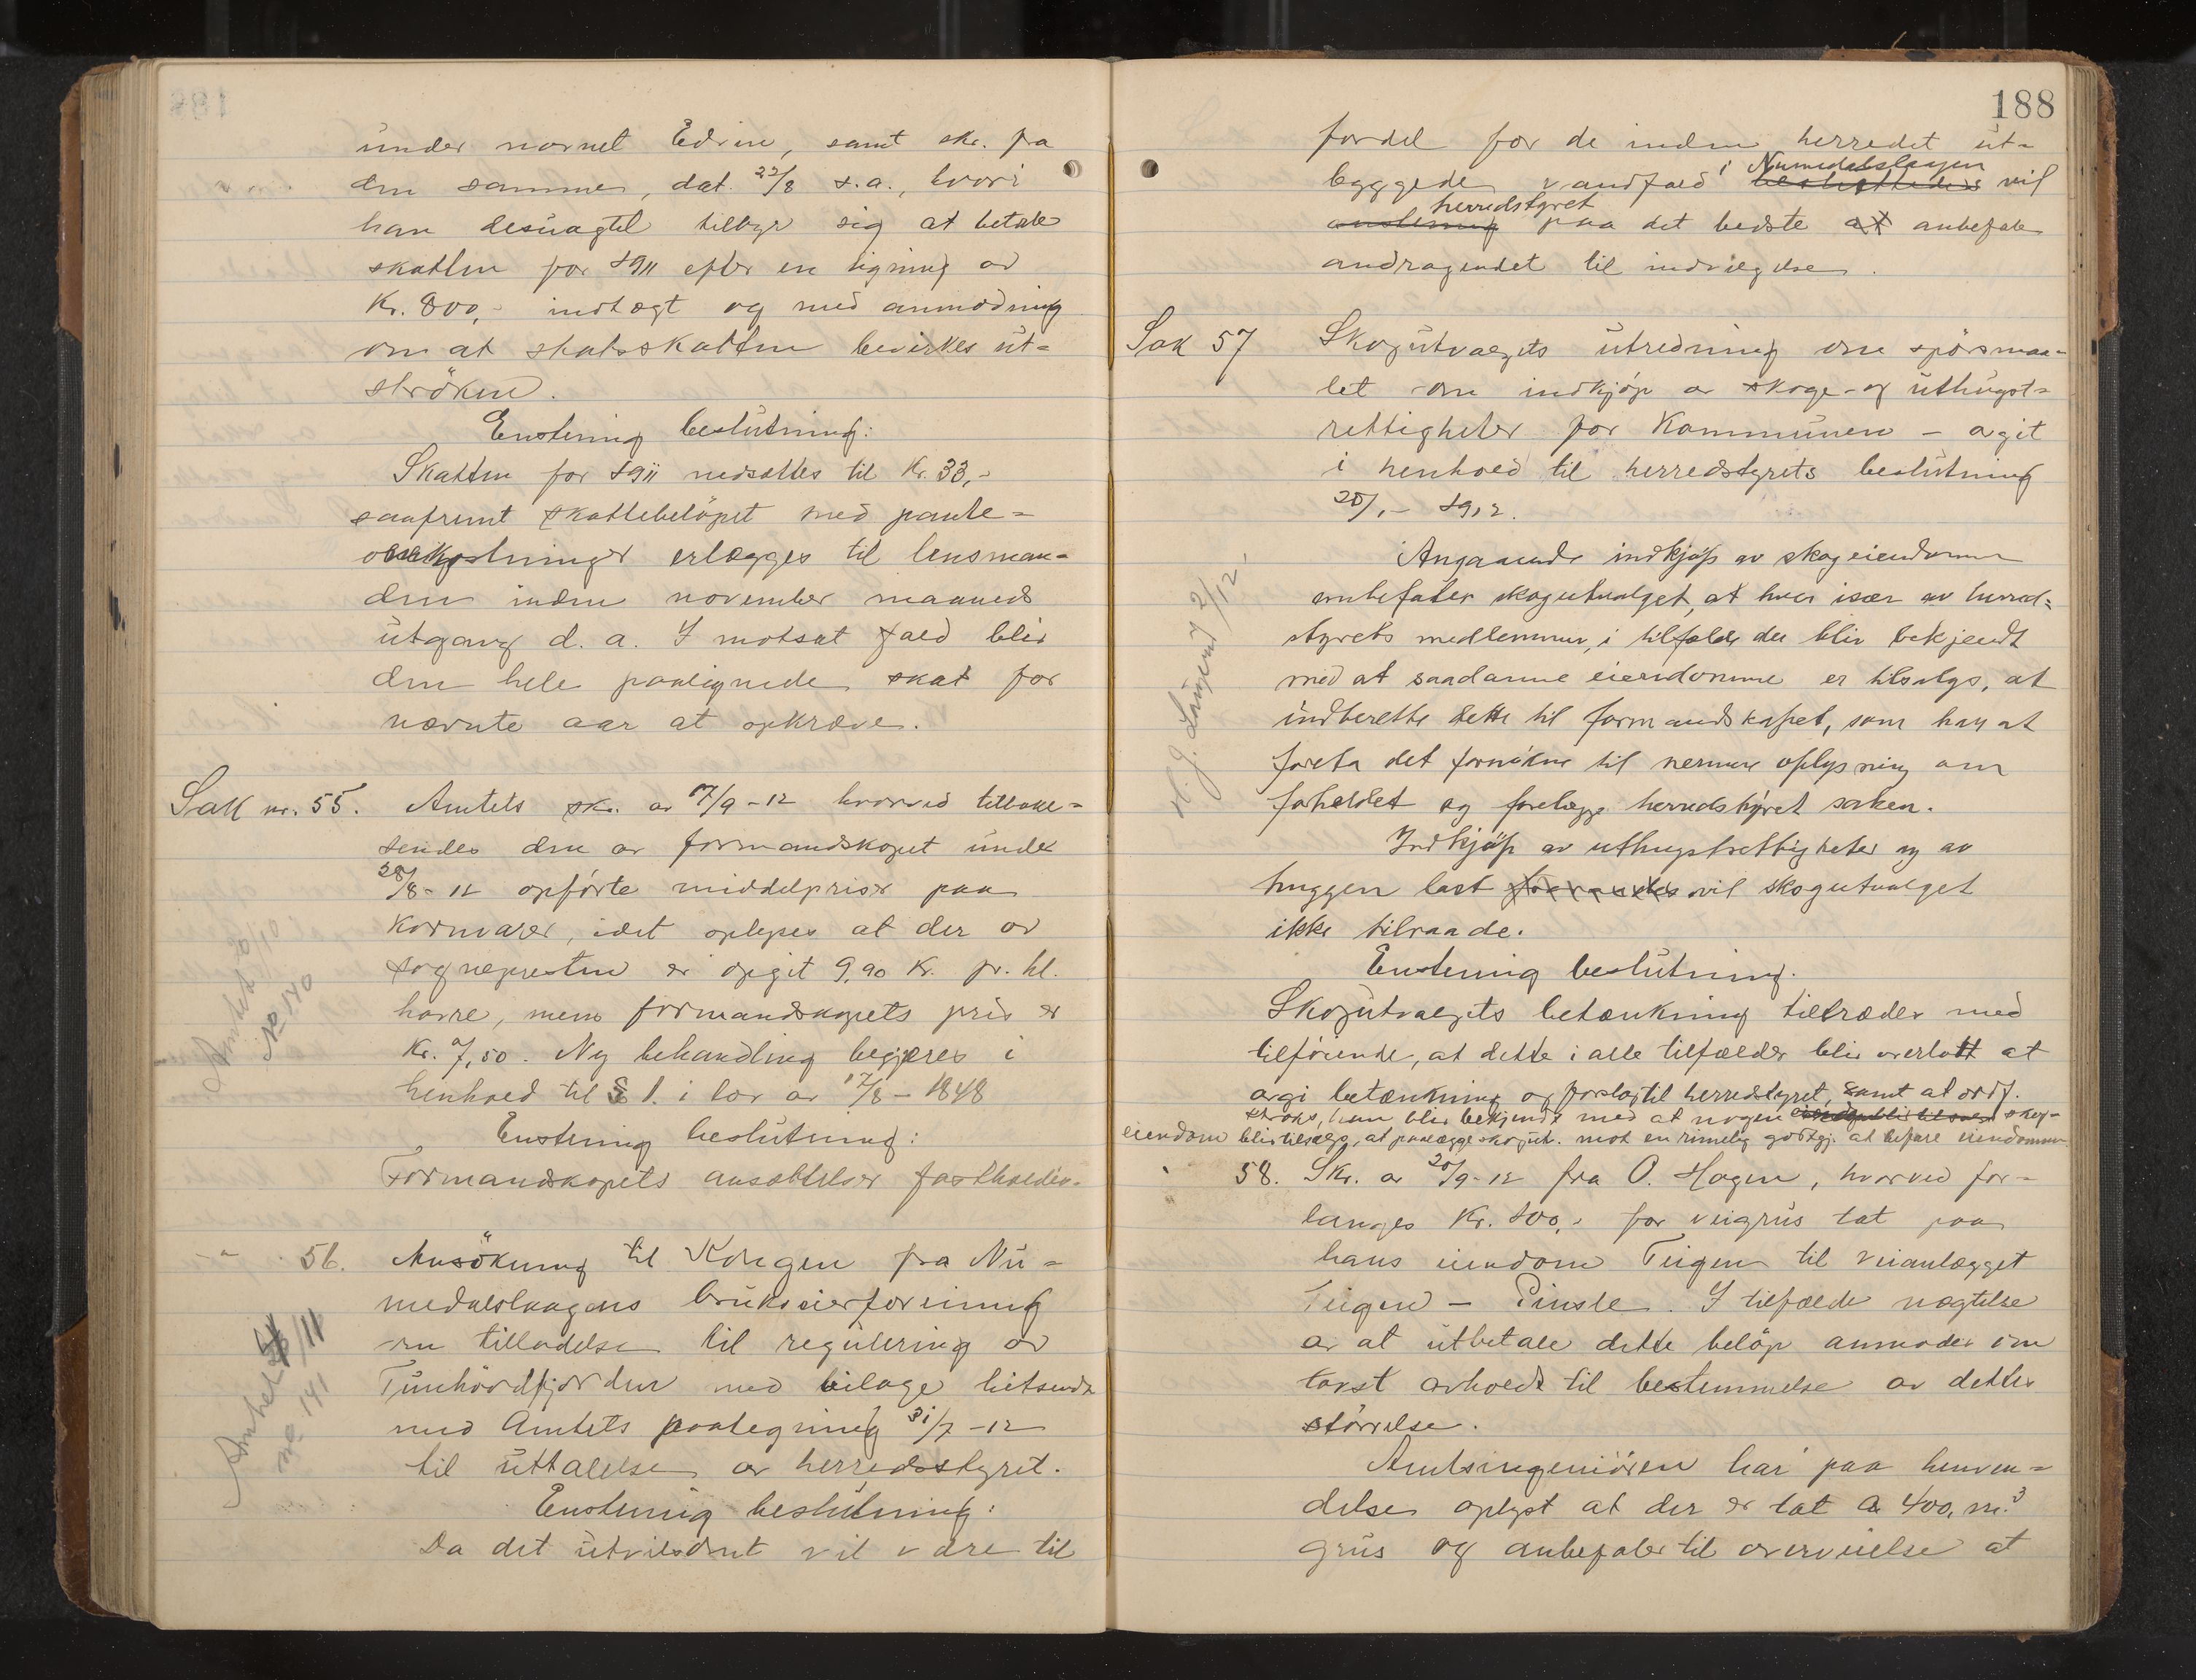 under navnet Edvin, samt skr. fra
den samme, dat. 22/8 s.a., hvori
han desuagtet tilbyr sig at betale
skatten for 1911 efter en ligning av
Kr. 800,- indtægt og med anmodning
om at statsskatten bevirkes ut-
strøken.
Enstemig beslutning:
Skatten for 1911 nedsættes til Kr. 33,-
saafremt skattebeløpet med pante-
omkostninger erlægges til lensman-
den inden november maaneds
utgang d. a. I motsat fald blir
den hele paalignede skat for
nævnte aar at opkræve.
Sak nr. 55. Amtets skr. av 17/9-12 hvorved tilbake-
sendes den av formandskapet under
28/8-12 opførte middelpriser paa
kornvarer, idet oplyses at der av
sognepresten er opgit 9,90 Kr. pr. hl.
havre, mens formandskapets pris er
Kr. 7,50. Ny behandling begjæres i
henhold til § 1. i lov av 12/8-1848
Enstemig beslutning:
Formandskapets ansættelser fastholdes.
Amtet
no 140
-"- 56. Ansøkning til Kongen fra Nu-
medalslaagens brukseierforening
om tilladelse til regulering av
Tunhövdfjorden med bilage hitsendt
med Amtets paategning 31/7-12
til uttalelse av herredsstyret.
Enstemig beslutning:
Da det utvilsomt vil være til
Amtet /11
no 141
188
fordel for de inden herredet ut-
byggede vandfald i Numedalslaagen vil
herredstyret paa det bedste at anbefale
andragendet til indvilgelse.
Sak 57 Skogutvalgets utredning om spørsmaa-
let om indkjøp av skoge- og uthugst-
rettigheter for Kommunen - avgit
i henhold til herredstyrets beslutning
25/1- 1912.
Angaaende indkjøp av skogeiendomme
anbefaler skogutvalget, at hver især av herred-
styrets medlemmer, i tilfælde der blir bekjendt
med at saadanne eiendomme er tilsalgs, at
indberette dette til formandskapet, som har at
foreta det fornødne til nærmere oplysning om
forholdet og forelægge herredstyret saken.
Indkjøp av uthugstrettigheter og av
huggen last vil skogutvalget
ikke tilraade.
Enstemig beslutning.
Skogutvalgets betænkning tiltrædes med
tilføiende, at dette i alle tilfælder blir overlatt at
avgi betænkning og forslag til herredstyret, samt at ordf.
straks, han blir bekjendt med at nogen skog-
eiendom blir tilsalgs, at paalægge skogutv. mot en rimelig godtgj. at befare eiendommen.
58. Skr. av 20/9-12 fra O. Hagen, hvorved for-
langes Kr. 100,- for veigrus tat paa
hans eiendom Teigen til veianlægget
Teigen - Pinsle. I tilfælde nægtelse
av at utbetale dette beløp anmodes om
takst avholdt til bestemmelse av dettes
størrelse.
Amtsingeniøren har paa henven-
delse oplyst at der er tat ca 400, m.³
grus og anbefaler til overveielse at